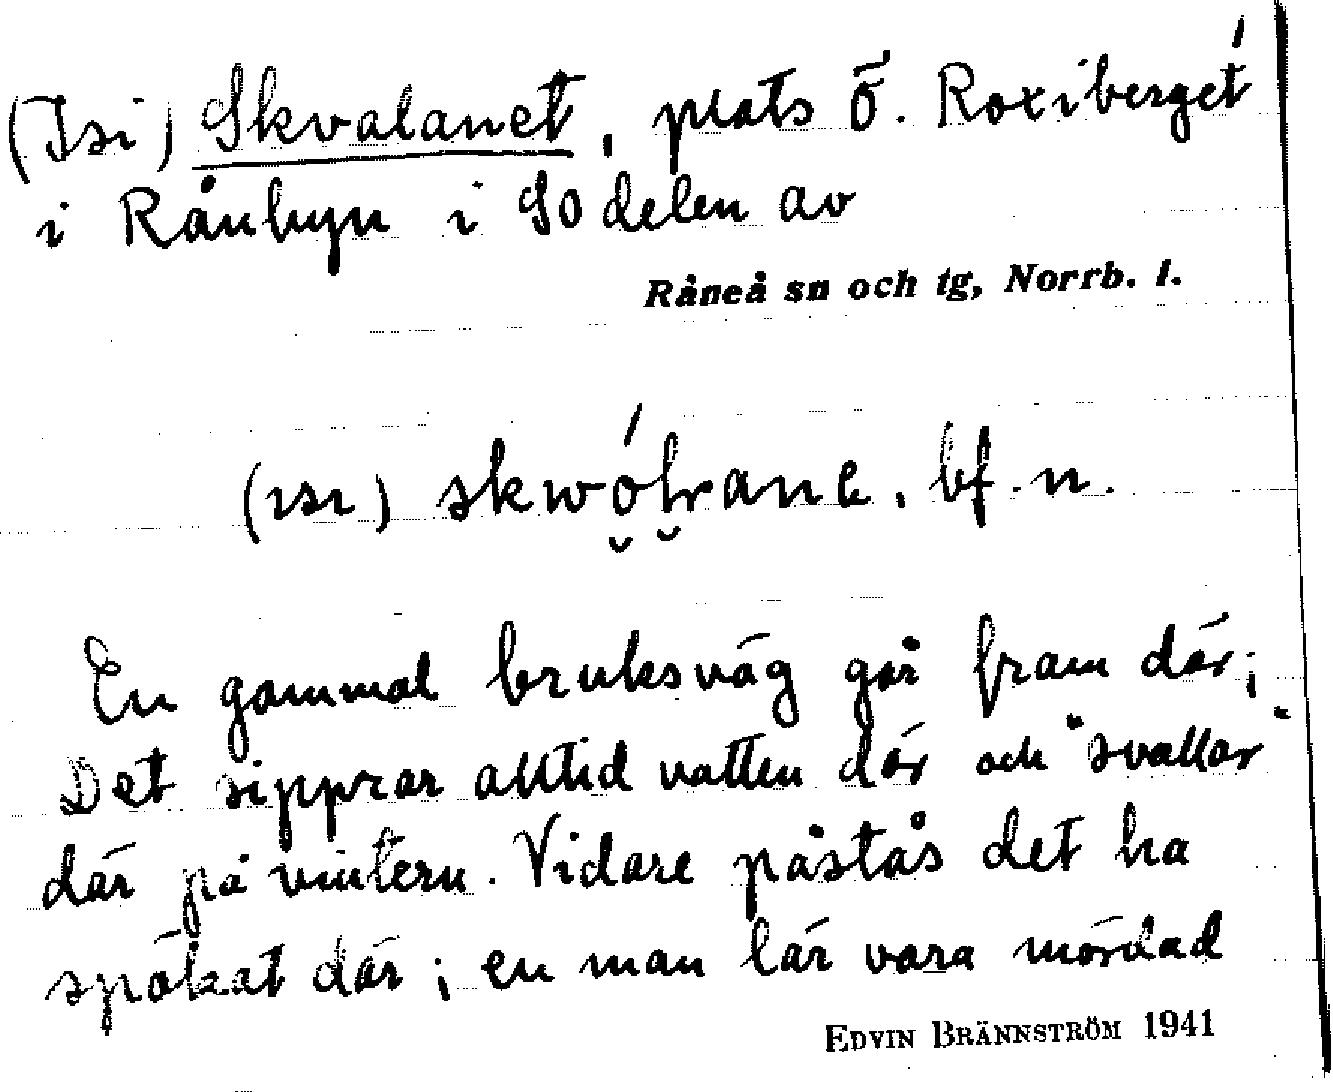 (Isi) Skvalanet, plats ö. Roxiberget
i Rånbyn i SO delen av
Råneå sn och tg, Norrb. l.
(ısı) skwóhrane, bf. n.
En gammal bruksväg går fram där;
Det sipprar alltid vatten där och "svallar"
där på vintern. Vidare påstås det ha
spökat där; en man lär vara mördad
EDVIN BRÄNNSTRÖM 1941